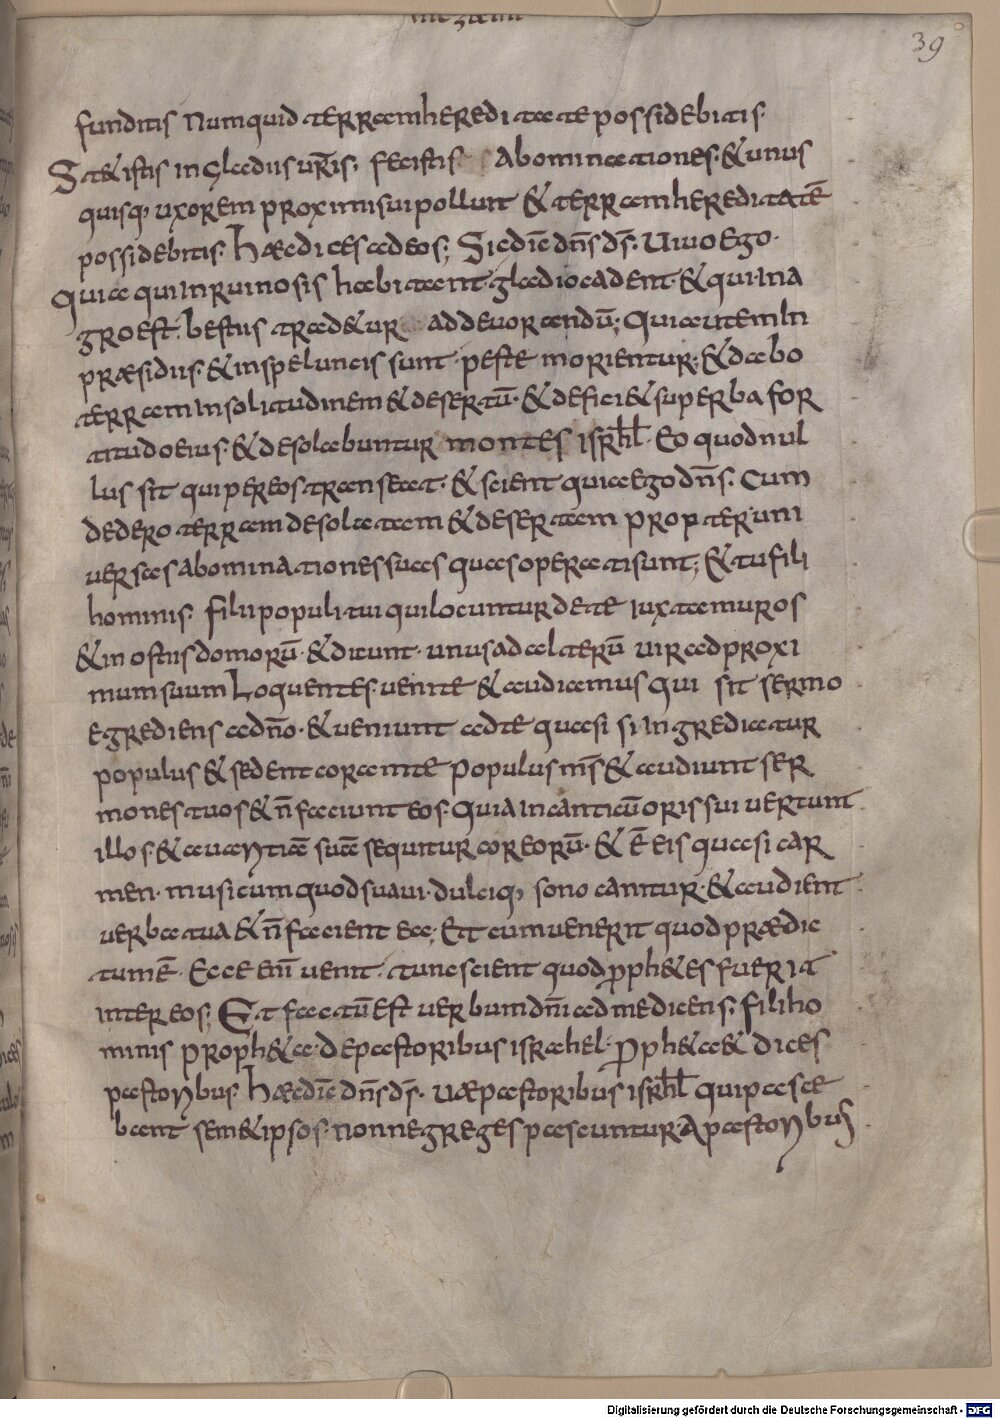 39
funditis Numquid terram hereditate possidebitis·
Stetistis in gladiis ur̄is· fecistis· abominationes· & unus
quisq; uxorem proximi sui polluit & terram hereditatē
possidebitis· Haec dices ad eos; Sic dic̄ dn̄s ds̄· Uiuo ego·
quia qui in ruinosis habitant· gladio cadent· & qui in a
gro est· bestiis trad&ur ad deuorandū; Qui autem In
praesidiis· & in speluncis sunt· peste morientur· & dabo
terram in solitudinem & desertū· & defici& superba for
titudo eius· & desolabuntur montes isrhl̄· Eo quod nul
lus sit qui per eos transeat· & scient quia ego dn̄s· Cum
dedero terram desolatam & desertam propter uni
uersas abominationes suas quas operati sunt; & tu fili
hominis· filii populi tui qui locuntur de te iuxta muros
& in ostiis domorū· & dicunt· unus ad alterū uir ad proxi
mum suum Loquentes· uenite & audiamus qui sit sermo
egrediens a dn̄o· & ueniunt ad te quasi si ingrediatur
populus & sedent coram te populus ms̄ & audiunt ser
mones tuos & n̄ faciunt eos· quia in canticū oris sui uertunt
illos· & auaritiā suā sequitur cor eorū· & ē eis quasi car
men· musicum quod suaui· dulciq; sono canitur· & audient
uerba tua & n̄ facient ea; Et cum uenerit quod praedic
tum ē· Ecce en̄ uenit· tunc scient quod proph&es fuerit
inter eos; Et factū est uerbum dn̄i ad me dicens· fili ho
minis proph&a· de pastoribus israhel· proph&a & dices
pastoribus· Haec dic̄ dn̄s ds̄· uae pastoribus isrhl̄ qui pasce
bant sem&ipsos· nonne greges pascuntur a pastoribus
Digitalisierung gefördert durch die Deutsche Forschungsgemeinschaft - DFG